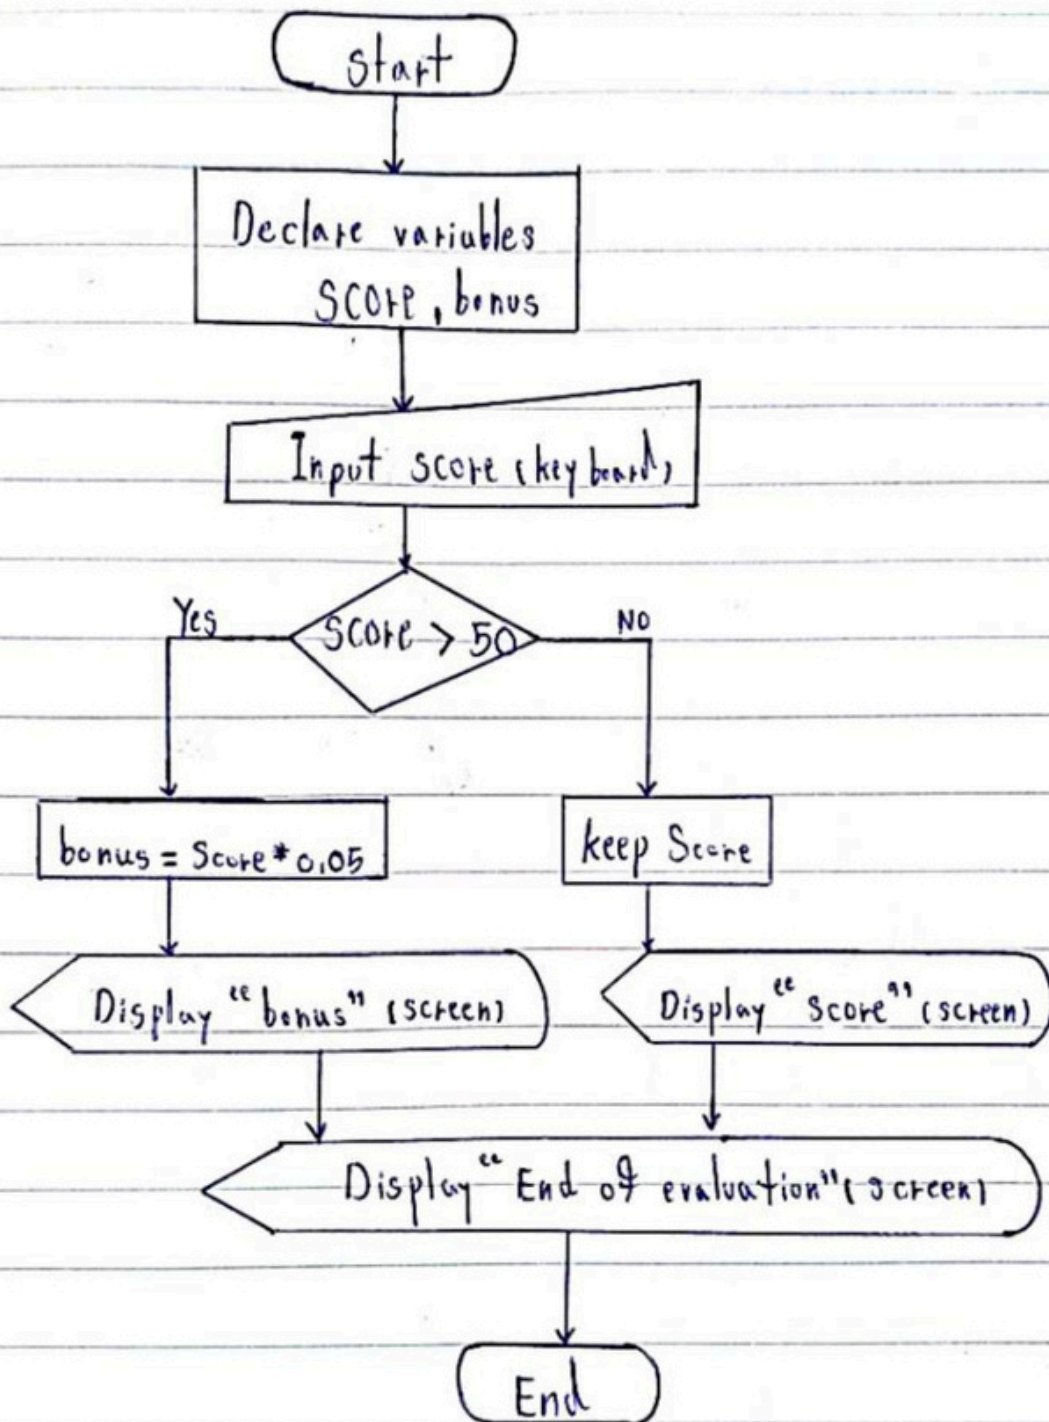 Start
Declare variables
score, bonus
Input score (keyboard)
Score > 50
Yes
NO
bonus = Score * 0.05
keep Score
Display “bonus” (screen)
Display “Score” (screen)
Display “End of evaluation” (screen)
End